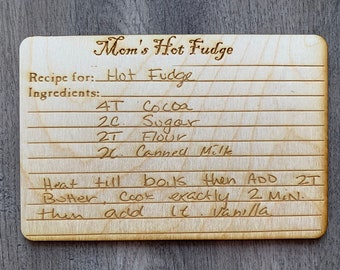 Mom's Hot Fudge
Recipe for: Hot Fudge
Ingredients:
4T Cocoa
2C Sugar
2T Flour
2C Canned Milk
Heat till boils then ADD 2T
Butter, Cook exactly 2 MIN.
then add 1t vanilla